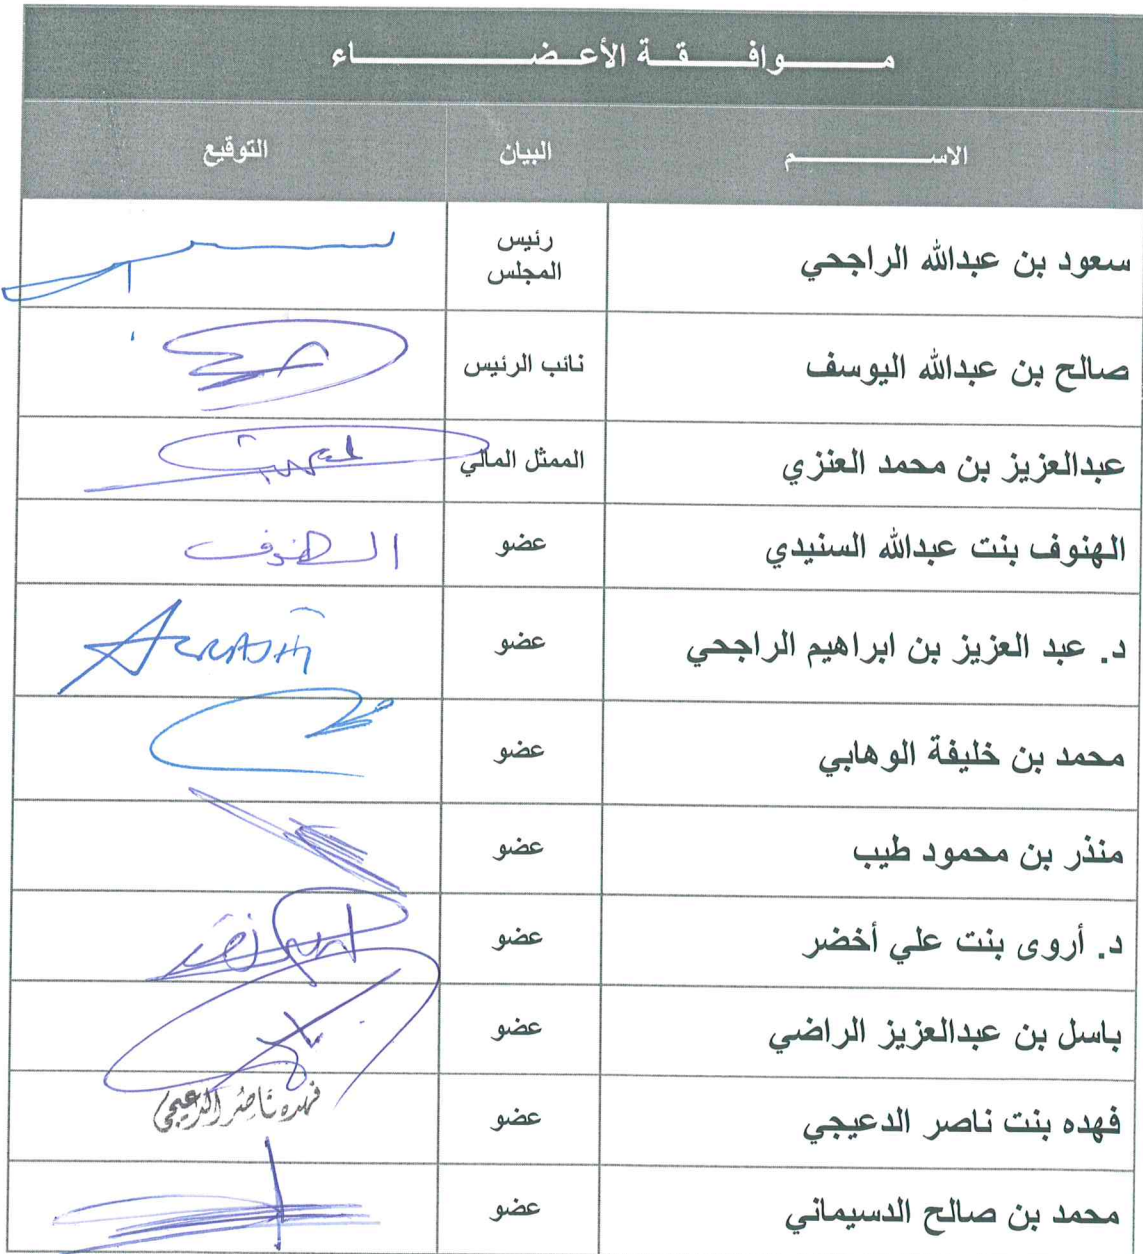 مـــــوافـــــقـــة الأعـــضـــــــــــــاء
الاســــــــــــم البيان التوقيع
سعود بن عبدالله الراجحي رئيس المجلس
صالح بن عبدالله اليوسف نائب الرئيس
عبدالعزيز بن محمد العنزي الممثل المالي
الهنوف بنت عبدالله السنيدي عضو الهنوف
د. عبد العزيز بن ابراهيم الراجحي عضو
محمد بن خليفة الوهابي عضو
منذر بن محمود طيب عضو
د. أروى بنت علي أخضر عضو
باسل بن عبدالعزيز الراضي عضو
فهده بنت ناصر الدعيجي عضو فهده ناصر الدعيجي
محمد بن صالح الدسيماني عضو